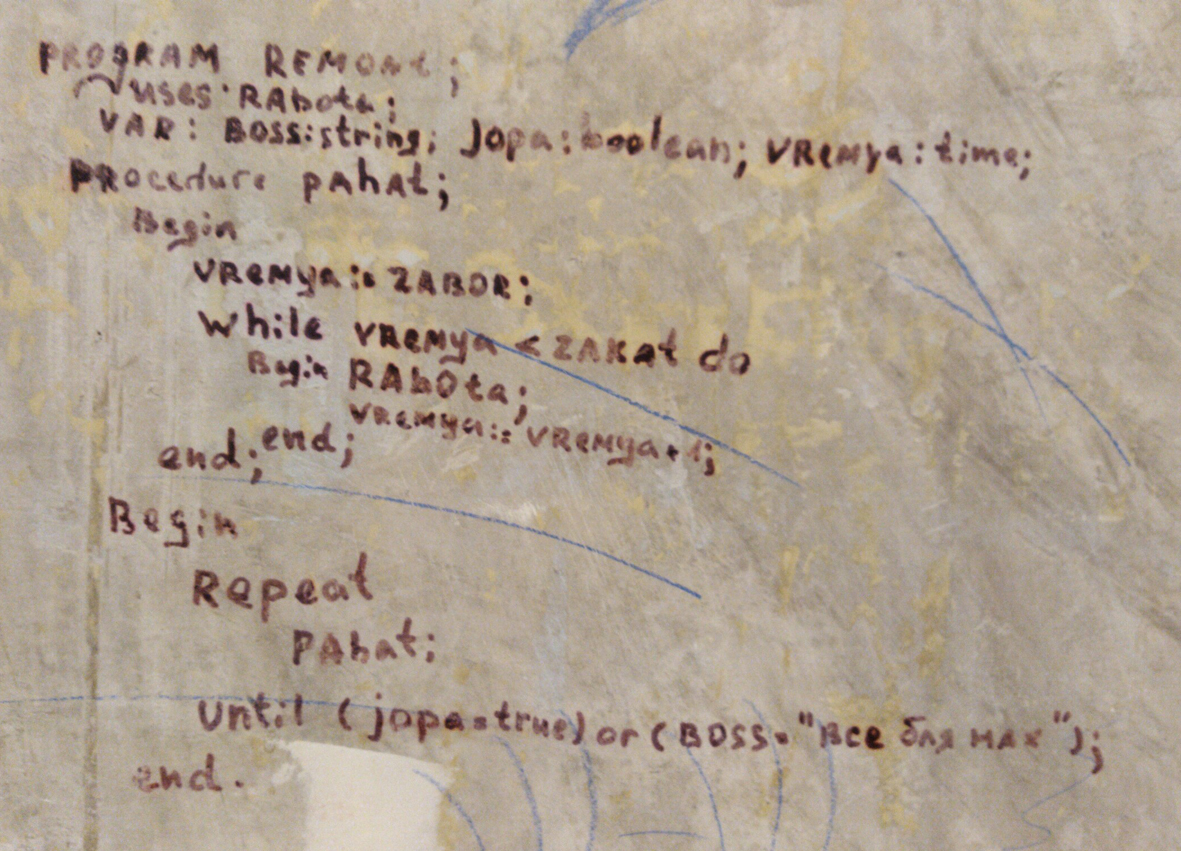 PROGRAM REMONt;
uses RAbota;
VAR: BOSS:string; jopa:boolean; VRemya:time;
PRocedure pAhat;
Begin
VRemya:= ZABOR;
While VRemya < ZAKat do
Begin RAbOta;
VRemya:= VRemya+1;
end;
end;
Begin
Repeat
PAhat;
Until (jopa=true) or (BOSS="Все бля нах");
end.